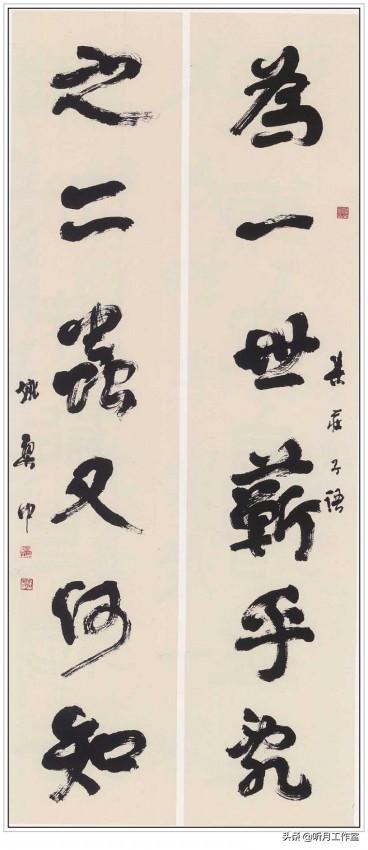 集莊子語
為一世蘄乎亂
之二蟲又何知
姚奠中
头条 @听月工作室